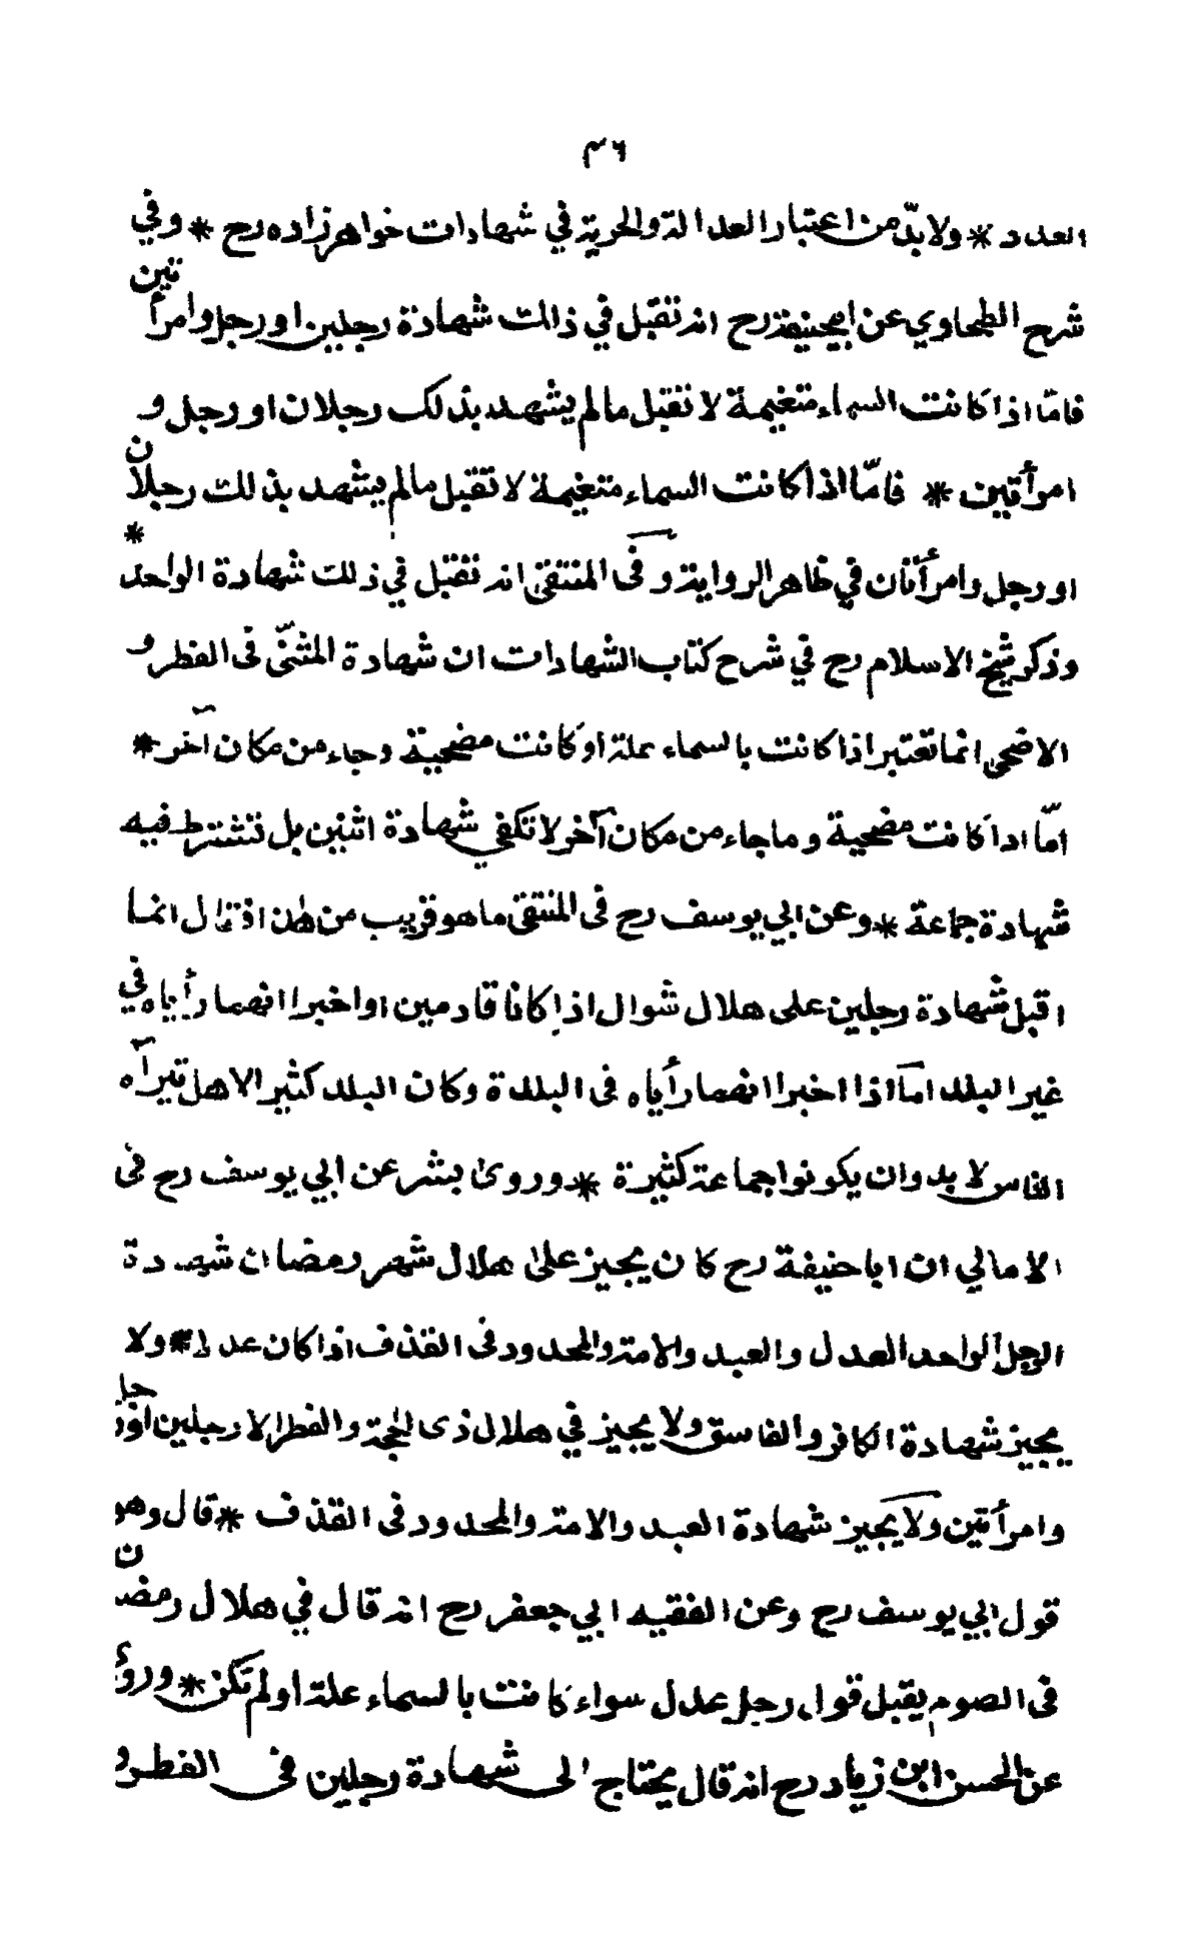 ٤٦
العدد * ولا بدّ من اعتبار العدالة والحرية في شهادات خواهرزاده رح * وفي
شرح الطحاوي عن ابيحنيفة رح انه تقبل في ذالك شهادة رجلين او رجل وامرأتين
فامّا اذا كانت السماء متغيمة لا تقبل مالم يشهد بذلك رجلان او رجل و
امرأتين * فامّا اذا كانت السماء متغيمة لا تقبل مالم يشهد بذلك رجلان
او رجل وامرأتان في ظاهر الرواية و فى المنتقى انه تقبل في ذلك شهادة الواحد *
وذكر شيخ الاسلام رح في شرح كتاب الشهادات ان شهادة المثنّى فى الفطر و
الاضحى انما تعتبر اذا كانت بالسماء علة او كانت مضحية وجاء من مكان آخر *
امّا اذا كانت مضحية وما جاء من مكان آخر لا تكفي شهادة اثنين بل تشترط فيه
شهادة جماعة * وعن ابي يوسف رح فى المنتقى ما هو قريب من هذا قال انما
اقبل شهادة رجلين على هلال شوال اذا كانا قادمين او اخبرا انهما رأياه في
غير البلد امآ اذا اخبرا انهما رأياه فى البلدة وكان البلد كثير الاهل تيرآه
الناس لا بد وان يكونوا جماعة كثيرة * وروى بشر عن ابي يوسف رح فى
الامالي ان ابا حنيفة رح كان يجيز على هلال شهر رمضان شهادة
الرجل الواحد العدل والعبد والامة والمحدود فى القذف اذا كان عدلا * ولا
يجيز شهادة الكافر والفاسق ولا يجيز في هلال ذى الحجة والفطر الا رجلين او رجل
وامرأتين ولا يجيز شهادة العبد والامة والمحدود فى القذف * قال وهو
قول ابي يوسف رح وعن الفقيه ابي جعفر رح انه قال في هلال رمضان
فى الصوم يقبل قول رجل عدل سواء كانت بالسماء علة او لم تكن *
عن الحسن ابن زياد رح انه قال يحتاج الى شهادة رجلين فى الفطر و